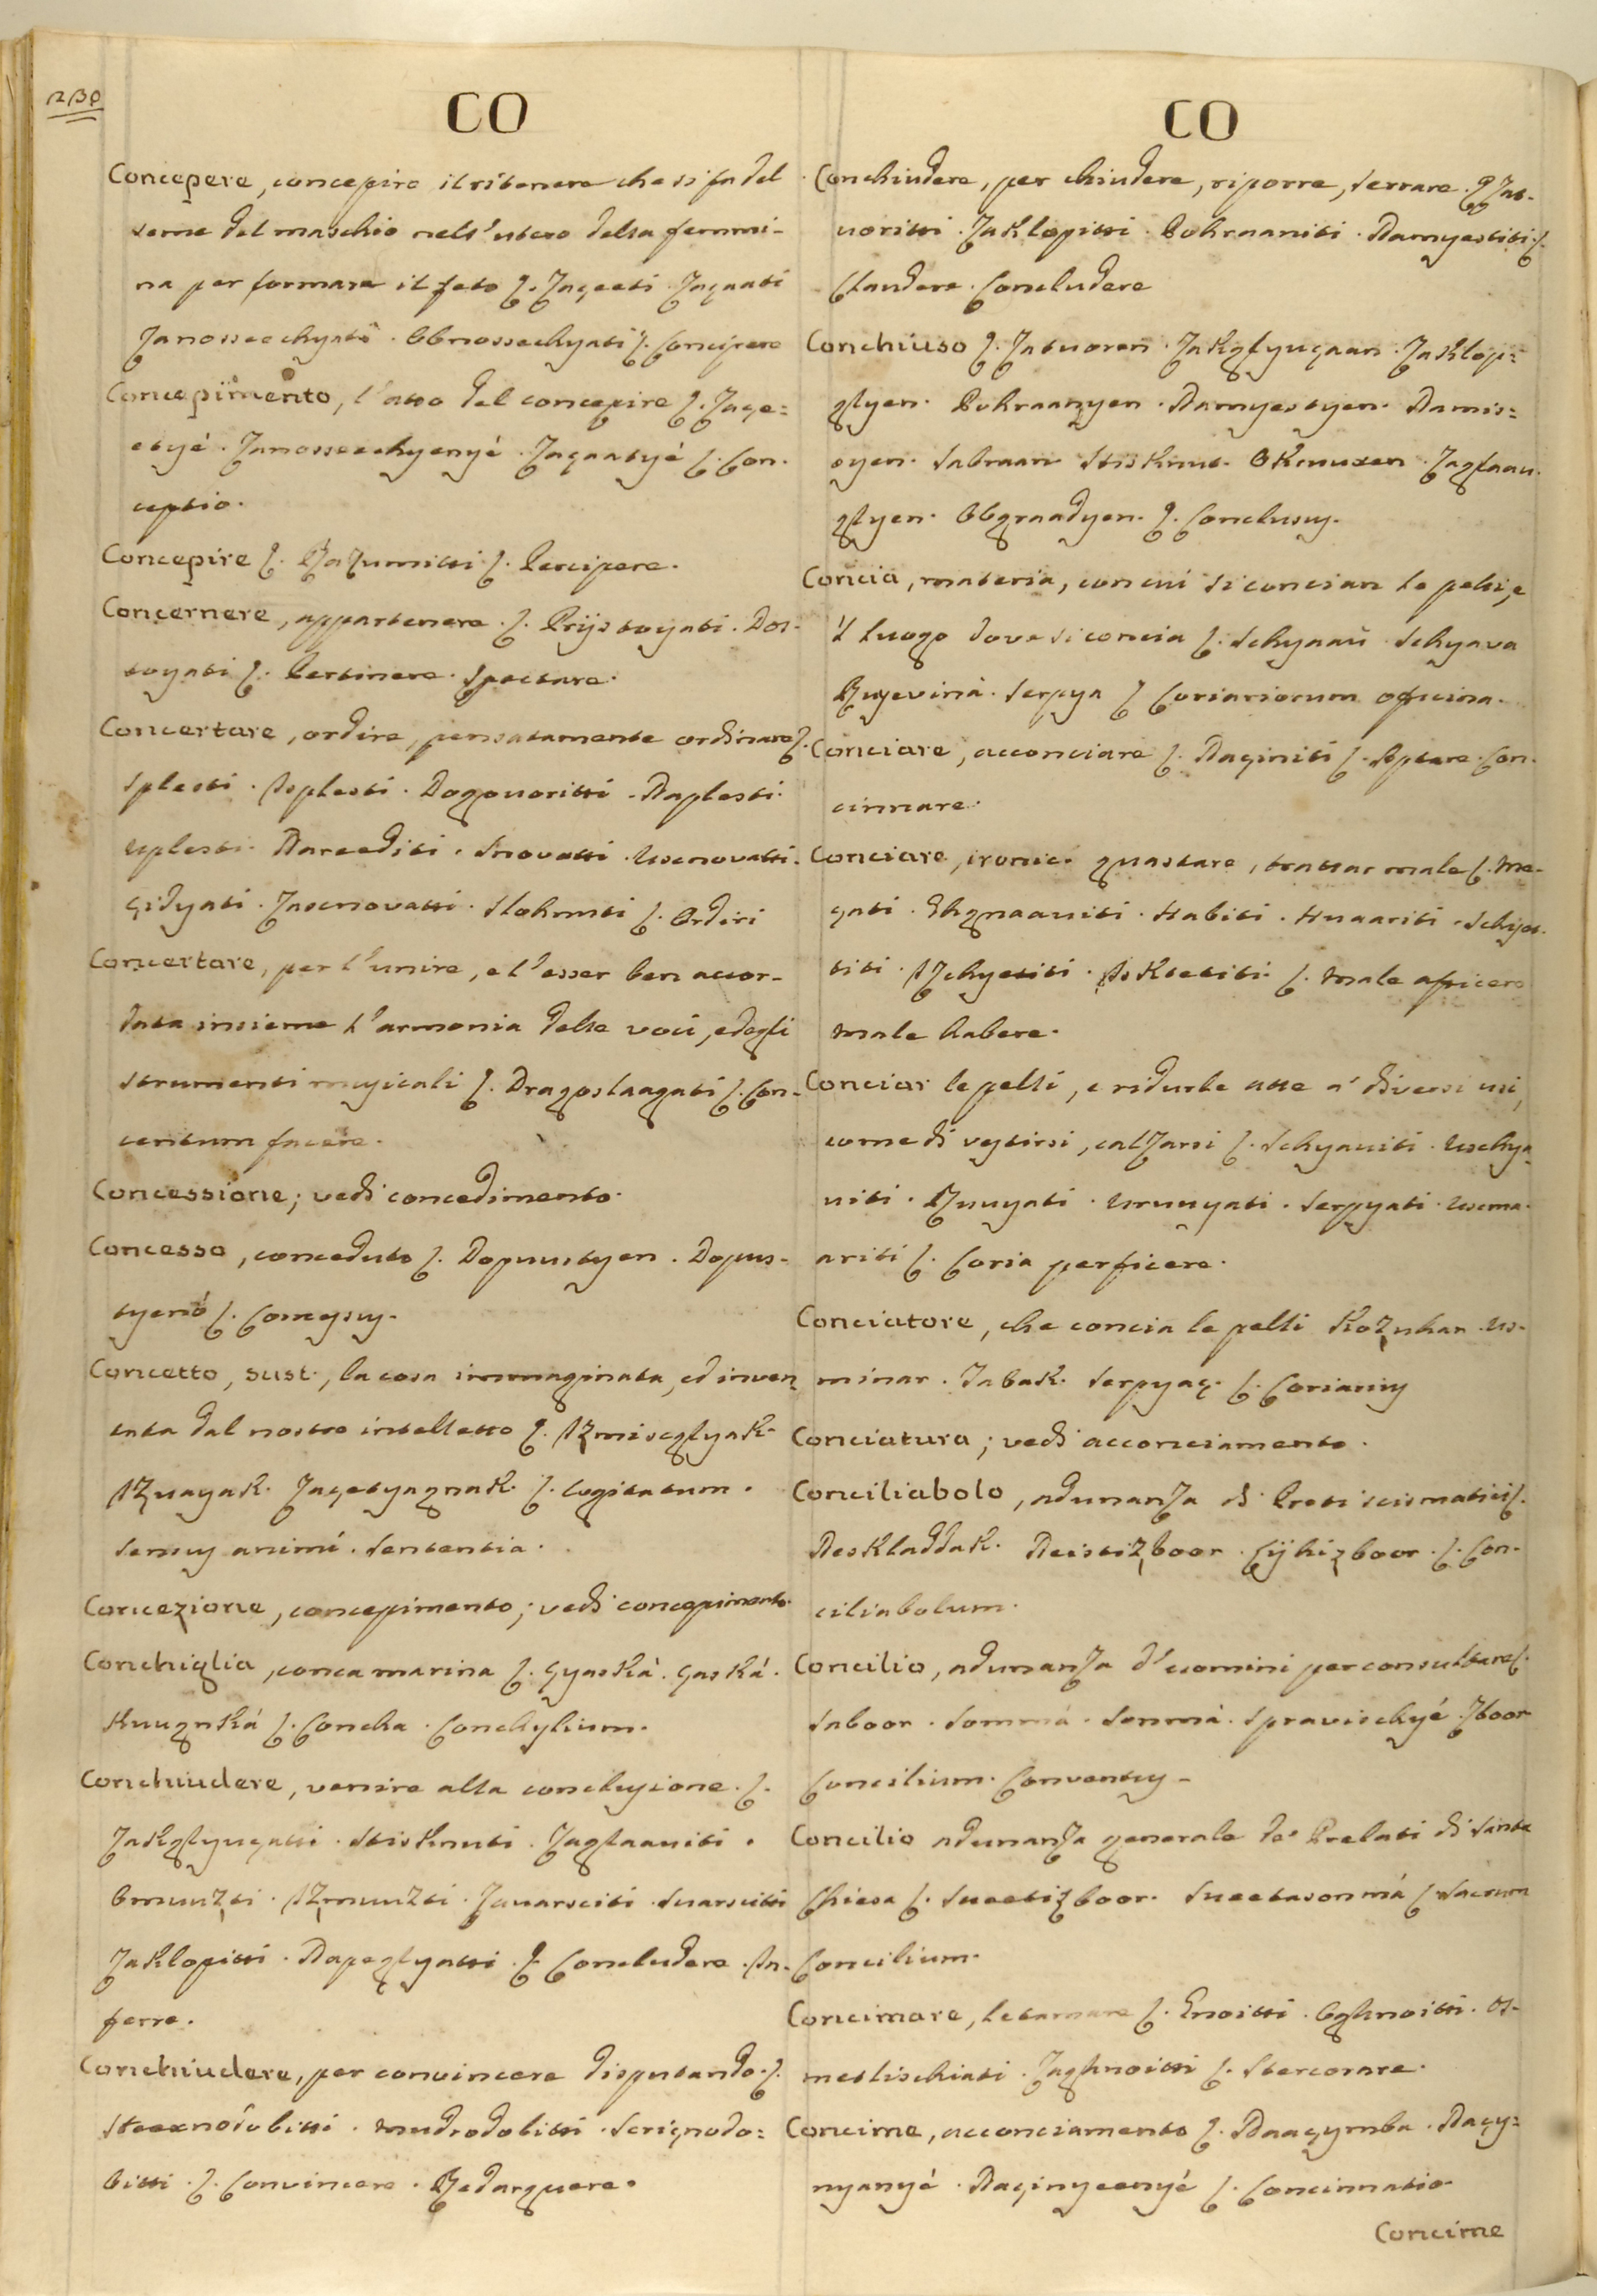 230
CO
Concepere, concepire il ritenere che si fa del
seme del maschio nell'utero della femmi-
na per formare il feto ſ. Zaçeeti. Zaçaati
Zanosseechyati. Obnossechyati ſ. Concipere
Concepimento, l'atto del concepire ſ. Zaçe=
etyé. Zanosseechyenyé. Zaçaatyé ſ. Con-
ceptio.
Concepire ſ. Razumitti ſ. Percipere.
Concernere, appartenere. ſ. Prijstoyati. Dos-
toyati ſ. Pertinere. Spectare.
Concertare, ordire, pensatamente ordinare ſ.
Splesti. Isplesti. Dogovoritti. Naplesti.
Uplesti. Narediti. Snovatti. Usnovatti.
çidyati. Zasnovatti. Stoknuti ſ. Ordiri
Concertare, per l'unire, e l'esser ben accor-
data insieme l'armonia delle voci, e degli
strumenti musicali ſ. Dragoslaagati ſ. Con-
centum facere.
Concessione; vedi concedimento.
Concesso, conceduto ſ. Dopuustyen. Dopus-
tyenó ſ. Concessus.
Concetto, sust., la cosa immaginata, ed inven
tata dal nostro intelletto ſ. Izmiseglyak.
Izvayak. Zaçetyagnak. ſ. Cogitatum.
Sensus animi. Sententia.
Concezione, concepimento; vedi concepimento.
Conchiglia, conca marina ſ. Gyaská. çaská.
Kuugnká ſ. Concha. Conchylium.
Conchiudere, venire alla conclusione. ſ.
Zakglyuçatti. Stisknuti. Zaglaaviti.
Omuuzti. Izmuuzti. Zavarsciti. Svarscitti
Zaklopitti. Napeglyatti. ſ. Concludere. In-
ferre.
Conchiudere, per convincere disputando. ſ.
dobitti. Mudrodobitti. Sriçnodo=
bitti. ſ. Convincere. Redarguere.
CO
Conchiudere, per chiudere, riporre, serrare. ſ Zat-
voritti. Zaklopitti. Pohraaniti. Namyestiti. ſ.
Claudere. Concludere
Conchiuso ſ. Zatvoren. Zakglyuçaan. Zaklop=
glyen. Pohraanyen. Namyestyen. Namis=
oyen. Sabraan Stisknut. Okruuxen. Zaglaav-
glyen. Obgraadyen. ſ. Conclusus.
Concia, materia, con cui si concian le pelli, e
'l luogo dove si concia ſ. Schyaaú. Schyava
Ruyeviná. Serpya ſ Coriariorum officina.
Conciare, acconciare ſ. Naçiniti ſ. Aptare. Con-
cinnare.
Conciare, ironic. guastare, trattar male ſ. Me-
çati. Habiti. Huaariti. Schyet-
titi. Izchyetiti. ſ. Male aficere
male habere.
Conciar le pelli, e ridurle atte a' diversi usi,
come di vestirsi, calzarsi ſ. Schyaviti. Uschya
viti. Ruuyati. Uruuyati. Serpyati. Usma-
ariti ſ. Coria perficere.
Conciatore, che concia le pelli Kozuhar. Us-
minar. Tabak. Serpyaç. ſ. Coriarius
Conciatura; vedi acconciamento.
Conciliabolo, adunanza di Preti scismatici ſ.
Neskladdak. Neistizboor. ſ. Con-
ciliabolum.
Concilio, adunanza d'uomini per consultare ſ.
Saboor. Sommá. Sonmá. Spravischyé. Zboor
Concilium. Conventus.
Concilio adunanza generale de' Prelati di Santa
Chiesa ſ. Sveetizboor. Sveetasonmá ſ Sacrum
Concilium.
Concimare, letamare ſ. Gnoitti. Oghnoitti. Os-
metlischiati. Zaghnoitti ſ. Stercorare.
Concime, acconciamento ſ. Naaçymba. Naçy=
nyanyé. Naçinyeenyé ſ. Concinnatio.
Concime